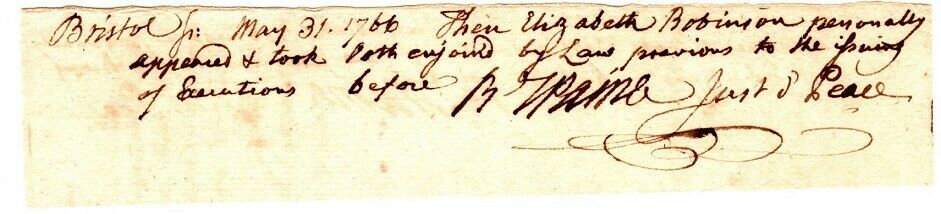 Bristol ss: May 31. 1766 Then Elizabeth Robinson personally
appeared & took Oath enjoind by Law previous to the issuing
of Executions before R T Paine Just o Peace